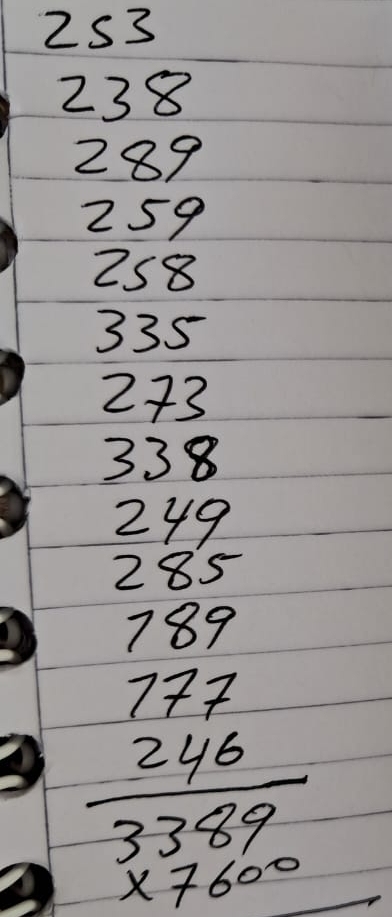 253
238
289
259
258
335
273
338
249
285
189
177
246
3389
x1600